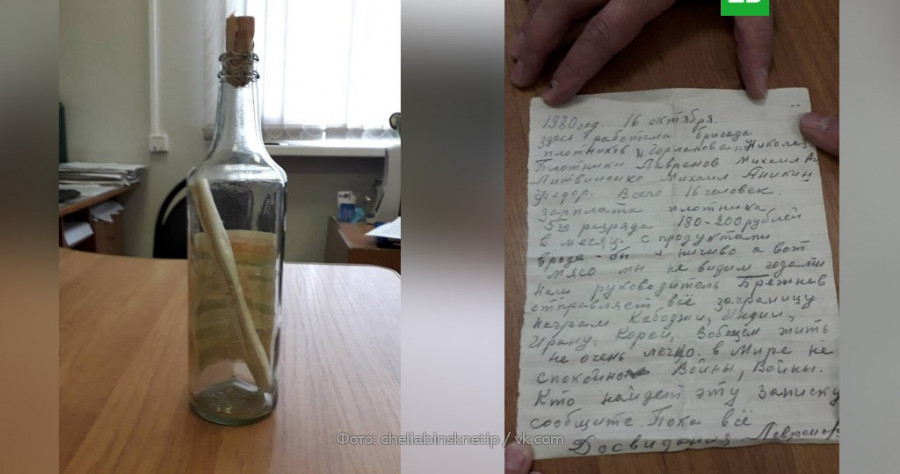 1980 год. 16 октября.
здесь работала бригада
плотников Николая
Плотники Лавренов Михаил
Литвиненко Михаил Аникин
Федор. Всего 16 человек.
Зарплата плотника
5го разряда 180-200 рублей
в месяц. с продуктами
вроде-бы и ничево а вот
мясо мы не видим годами
Наш руководитель Брежнев
отправляет всё заграницу
Неграм Кабоджи, Индии,
Ирану, Кореи, Вобщем жить
не очень легко. в Мире не
спокойно Войны, Войны.
Кто найдет эту Записку
сообщите. Пока всё
Досвидания Лавренов
Фото: cheliabinsknetip / vk.com